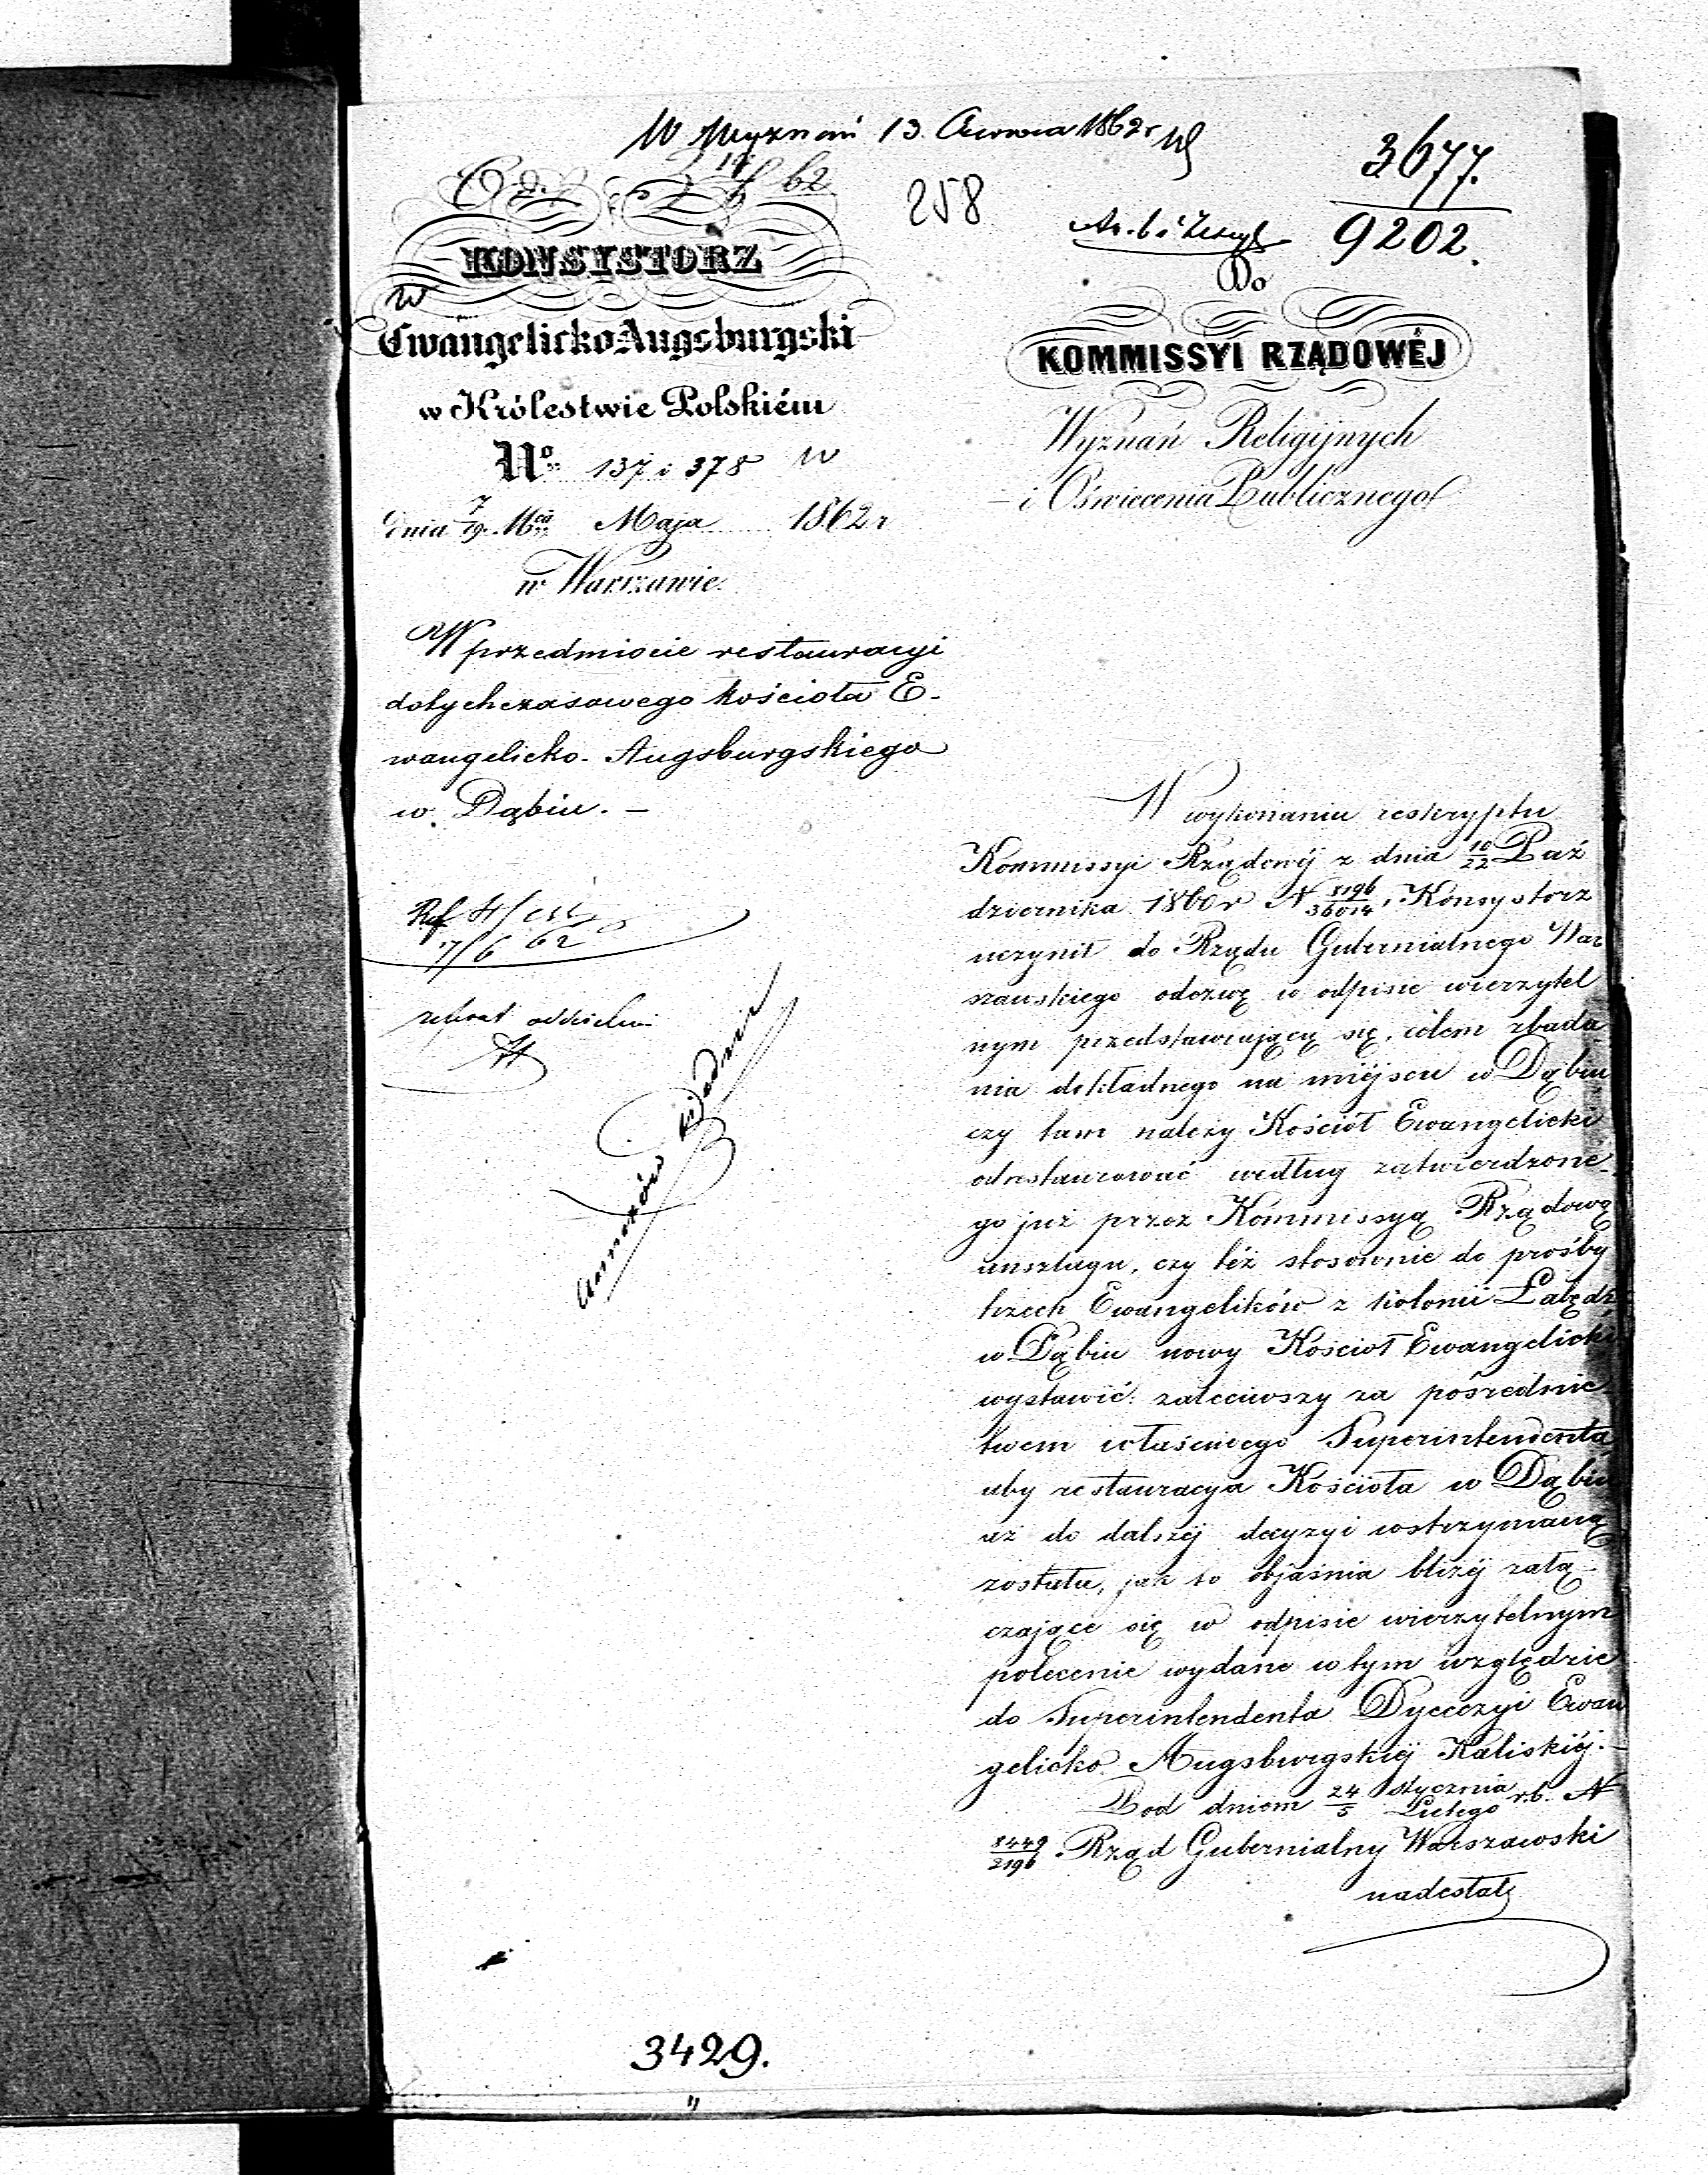 W Wyznań 13. Czerwca 1862 r
258
3677.
9202.
Do
KONSYSTORZ
EwangelickoAugsburgski
w Królestwie Polskiém
No. 137 i 378
dnia 7/19. Mca Maja 1862 r
w Warszawie.
W przedmiocie restauracyi
dotychczasowego kościoła E-
wangelicko-Augsburgskiego
w Dąbiu. –
7/6 62
referat oddzielni
KOMMISSYI RZĄDOWÉJ
Wyznań Religijnych
i Oświecenia Publicznego
W wykonaniu reskryptu
Kommissyi Rządowéj z dnia 10/22 Paź
dziernika 1860 r N 8196/36014, Konsystorz
uczynił do Rządu Gubernialnego War
szawskiego odezwę w odpisie wierzytel
nym przedstawiającą się, celem zbada
nia dokładnego na miéjscu w Dąbiu
czy tam należy Kościół Ewangelicki
odrestaurować według zatwierdzone-
go już przez Kommissyą Rządową
anszlagu, czy téż stosownie do prośby
trzech Ewangelików z kolonii Łabędz
w Dąbiu nowy Kościół Ewangelicki
wystawić: zaleciwszy za pośrednic
twem właściwego Superintendenta
aby restauracya Kościoła w Dąbiu
aż do dalszéj decyzyi wstrzymaną
została, jak to objaśnia bliżéj załą-
czające się w odpisie wierzytelnym
polecenie wydane w tym względzie
do Superintendenta Dyecezyi Ewan
gelicko Augsburgskiéj Kaliskiéj. –
Pod dniem 24/5 Stycznia/Lutego r.b. N
8449/2196 Rząd Gubernialny Warszawski
nadesłał
3429.